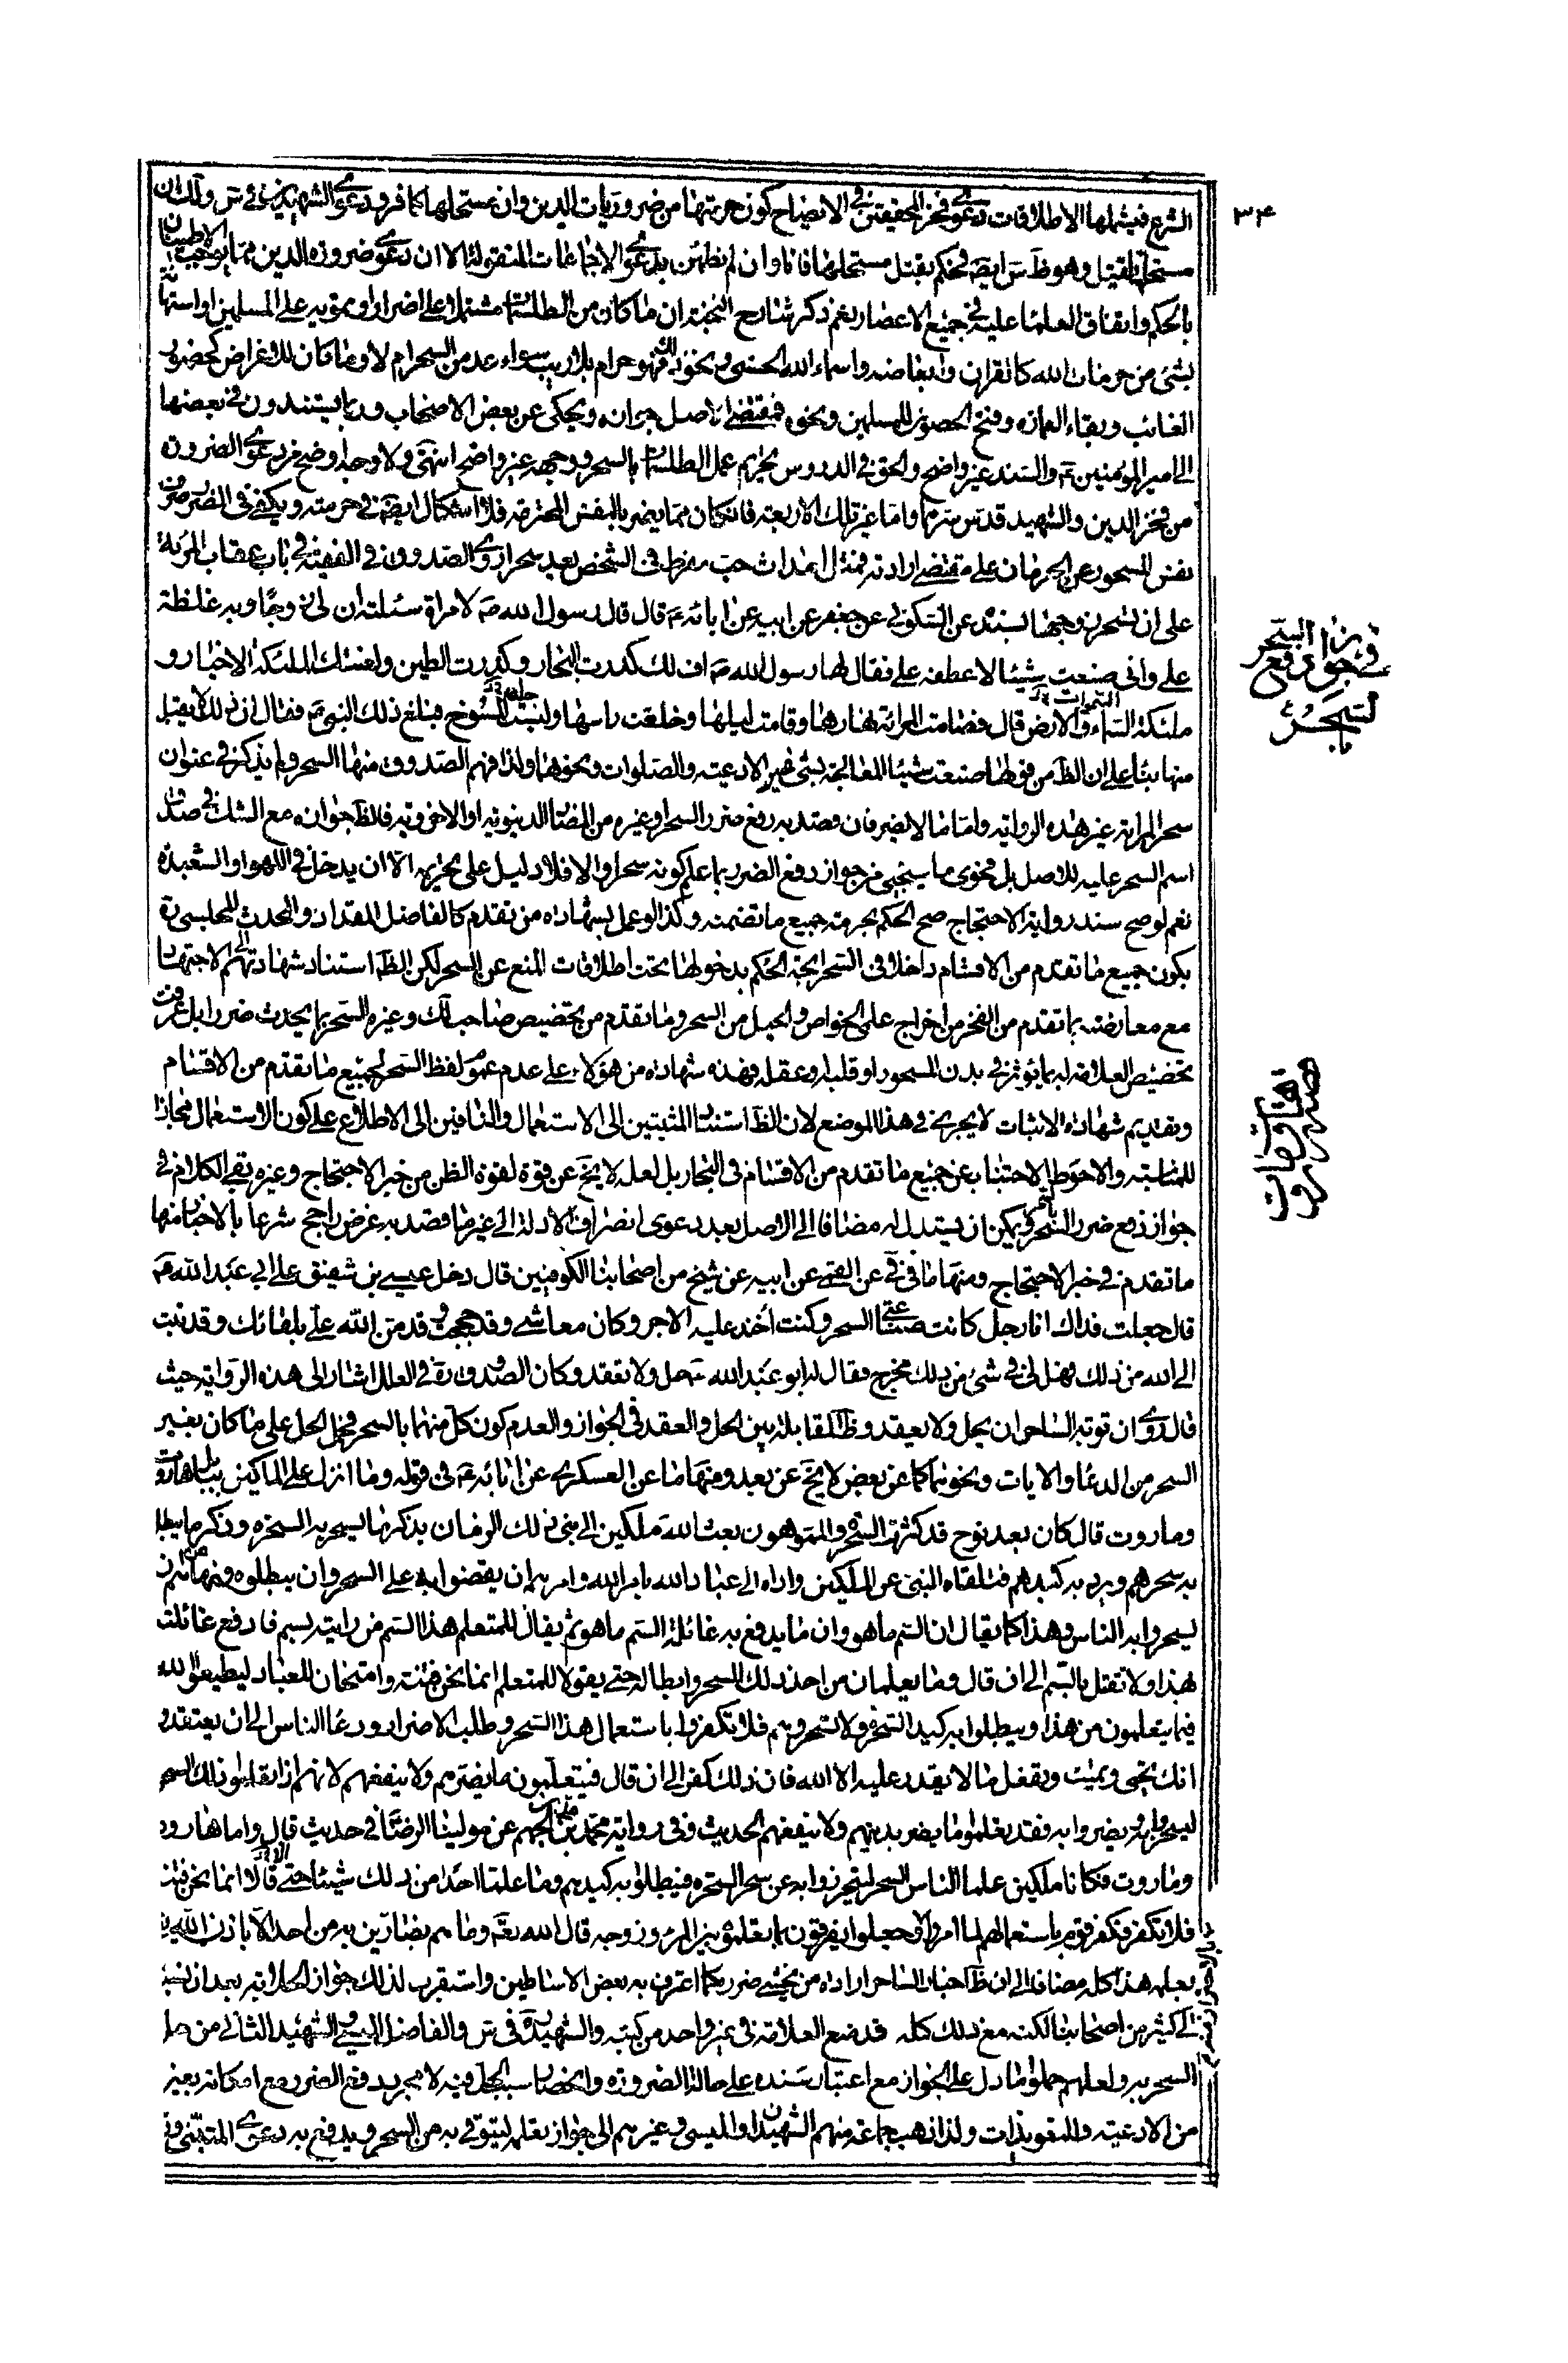 ۳۴
الشرع فيشملها الاطلاقات دعوى فخر المحققين في الايضاح كون حرمتها من ضروريات الدين وان مستحلها كافر ودعوى الشهيدين في س ولك ان
مستحله يقتل وهو ظ س ايضا فيحكم بقتل مستحلها فانا وان لم نطمئن بدعوى الاجماعات المتقدمة الا ان دعوى ضرورة الدين مما يوجب الاطمينان
بالحكم واتفاق العلماء عليه في جميع الاعصار نعم ذكر شارح النخبة ان ما كان من الطلسمات مشتملا على اضرار او تمويه على المسلمين او استهانة
بشئ من حرمات الله كالقران وابعاضه واسماء الله الحسنى ونحو ذلك فهو حرام بلا ريب سواء عد من السحر ام لا وما كان للاغراض كحضور
الغائب وبقاء العمارة وفتح الحصون للمسلمين ونحوه فمقتضى الاصل جوازه ويحكى عن بعض الاصحاب وربما يستندون في بعضها
الى امير المؤمنين ع والسند غير واضح والحق في الدروس تحريم عمل الطلسمات بالسحر ووجهه غير واضح انتهى ولا وجه اوضح من دعوى الضرورة
من فخر الدين والشهيد قدس سرهما واما غير تلك الاربعة فان كان مما يضر بالنفس المحترمة فلا اشكال ايضا في حرمته ويكفي في الضرر صرف
نفس المسحور عن الجريان على مقتضى ارادته فمثل احداث حب مفرط في الشخص يعد سحرا روى الصدوق في الفقيه في باب عقاب المرئة
على ان تسحر زوجها بسنده عن السكوني عن جعفر عن ابيه عن ابائه ع قال قال رسول الله ص لامراة سئلته ان لي زوجا وبه غلظة
على واني صنعت شيئا لاعطفه على فقال لها رسول الله ص اف لك كدرت البحار وكدرت الطين ولعنتك الملئكة الاخيار و
ملئكة السماء والارض قال فصامت المراة نهارها وقامت ليلها وحلقت راسها ولبست المسوح فبلغ ذلك النبي ص فقال ان ذلك لا يقبل
منها بناء على ان الظ من قولها صنعت شيئا المعالجة بشئ غير الادعية والصلوات ونحوها ولذا فهم الصدوق منها السحر ولم يذكر في عنوان
سحر المراة غير هذه الرواية واما ما لا يضر فان قصد به دفع ضرر السحر او غيره من المضار الدنيوية او الاخروية فالظ جوازه مع الشك في صدق
اسم السحر عليه للاصل بل فحوى ما سيجيئ من جواز دفع الضرر بما علم كونه سحرا والا فلا دليل على تحريمه الا ان يدخل في اللهو او الشعبدة
نعم لو صح سند رواية الاحتجاج صح الحكم بحرمة جميع ما تضمنته وكذا لو عمل بشهادة من تقدم كالفاضل المقداد والمحدث المجلسي ره
بكون جميع ما تقدم من الاقسام داخلا في السحر اتجه الحكم بدخولها تحت اطلاقات المنع عن السحر لكن الظ استناد شهادتهم الى الاجتهاد
مع معارضته بما تقدم من الفخر من اخراج علمي الخواص والحيل من السحر وما تقدم من تخصيص صاحب لك وغيره السحر بما يحدث ضررا بل عرفت
تخصيص العلامة له بما يؤثر في بدن المسحور او قلبه او عقله فهذه شهادة من هؤلاء على عدم عموم لفظ السحر لجميع ما تقدم من الاقسام
وتقديم شهادة الاثبات لا يجري في هذا الموضع لان الظ استناد المثبتين الى الاستعمال والنافين الى الاطلاع على كون الاستعمال مجازا
للمناسبة والاحوط الاجتناب عن جميع ما تقدم من الاقسام في البحار بل لعله لا يخ عن قوة لقوة الظن من خبر الاحتجاج وغيره بقي الكلام في
جواز دفع ضرر السحر بالسحر ويمكن ان يستدل له مضافا الى الاصل بعد دعوى انصراف الادلة الى غير ما قصد به غرض راجح شرعا بالاخبار منها
ما تقدم في خبر الاحتجاج ومنها ما في في عن القمي عن ابيه عن شيخ من اصحابنا الكوفيين قال دخل عيسى بن شقيق على ابي عبد الله ع
قال جعلت فداك انا رجل كانت صناعتي السحر وكنت اخذ عليه الاجر وكان معاشي وقد حججت وقد من الله على بلقائك وقد تبت
الى الله من ذلك فهل لي في شئ من ذلك مخرج فقال له ابو عبد الله ع حل ولا تعقد وكان الصدوق ره في العلل اشار الى هذه الرواية حيث
قال روى ان توبة الساحر ان يحل ولا يعقد وظ المقابلة بين الحل والعقد في الجواز والعدم كون كل منهما بالسحر فحمل الحل على ما كان بغير
السحر من الدعاء والايات ونحوهما كما عن بعض لا يخ عن بعد ومنها ما عن العسكري عن ابائه ع في قوله وما انزل على الملكين ببابل هاروت
وماروت قال كان بعد نوح قد كثرت السحرة والمموهون بعث الله ملكين الى نبي ذلك الزمان بذكر ما يسحر به السحرة وذكر ما يبطل
به سحرهم ويرد به كيدهم فتلقاه النبي عن الملكين واداه الى عباد الله بامر الله وامرهم ان يقضوا به على السحر وان يبطلوه ونهاهم ان
يسحروا به الناس وهذا كما يقال ان السم ما هو وان ما يدفع به غائلة السم ما هو ثم يقال للمتعلم هذا السم فمن رايته يسم فادفع غائلته
بهذا ولا تقتل بالسم الى ان قال وما يعلمان من احد ذلك السحر وابطاله حتى يقولا للمتعلم انما نحن فتنة وامتحان للعباد ليطيعوا الله
فيما يتعلمون من هذا ويبطلوا به كيد السحرة ولا تسحروهم فلا تكفروا باستعمال هذا السحر وطلب الاضرار ودعاء الناس الى ان يعتقدوا
انك تحيي وتميت وتفعل ما لا يقدر عليه الا الله فان ذلك كفر الى ان قال فيتعلمون ما يضرهم ولا ينفعهم لانهم اذا تعلموا ذلك السحر
ليسحروا به ويضروا به فقد تعلموا ما يضر بدينهم ولا ينفعهم الحديث وفي رواية محمد بن الجهم عن مولينا الرضا في حديث قال واما هاروت
وماروت فكانا ملكين علما الناس السحر ليتحرزوا به عن سحر السحرة فيبطلوا به كيدهم وما علما احدا من ذلك شيئا حتى قالا انما نحن فتنة
فلا تكفر فكفر قوم باستعمالهم لما امروا وجعلوا يفرقون بما تعلموه بين المرء وزوجه قال الله تعه وما هم بضارين به من احد الا باذن الله يعني
بعلمه هذا كله مضافا الى ان ظ اخبار الساحر ارادة من يخشى ضرره كما اعترف به بعض الاساطين واستقرب لذلك جواز الحل به بعد ان نسبه
الى كثير من اصحابنا لكنه مع ذلك كله قد منع العلامة في غير واحد من كتبه والشهيد ره في س والفاضل الميسي والشهيد الثاني من حل
السحر به ولعلهم حملوا ما دل على الجواز مع اعتبار سنده على حالة الضرورة وانحصار سبب الحل فيه لا مجرد دفع الضرر مع امكانه بغيره
من الادعية والتعويذات ولذا ذهب جماعة منهم الشهيدان والميسي وغيرهم الى جواز تعلمه ليتوقى به من السحر ويدفع به دعوى المتنبي و